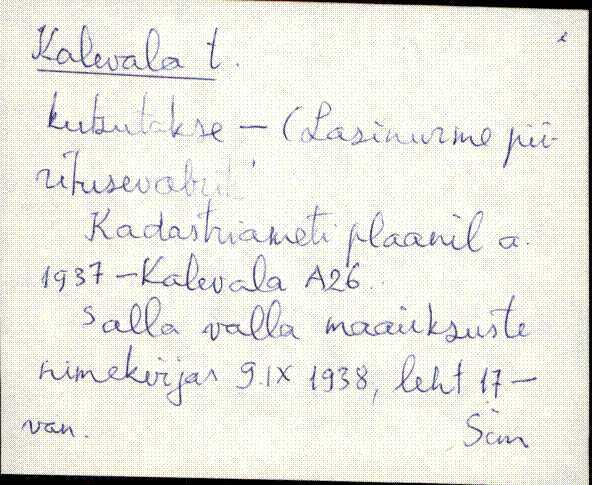 Kalevala t.
kutsutakse – (Lasinurme pii-
ritusevabrik
Kadastriameti plaanil a.
1937 – Kalevala A26.
Salla valla maaüksuste
nimekirjas 9.IX 1938, leht 17 –
van. Sim